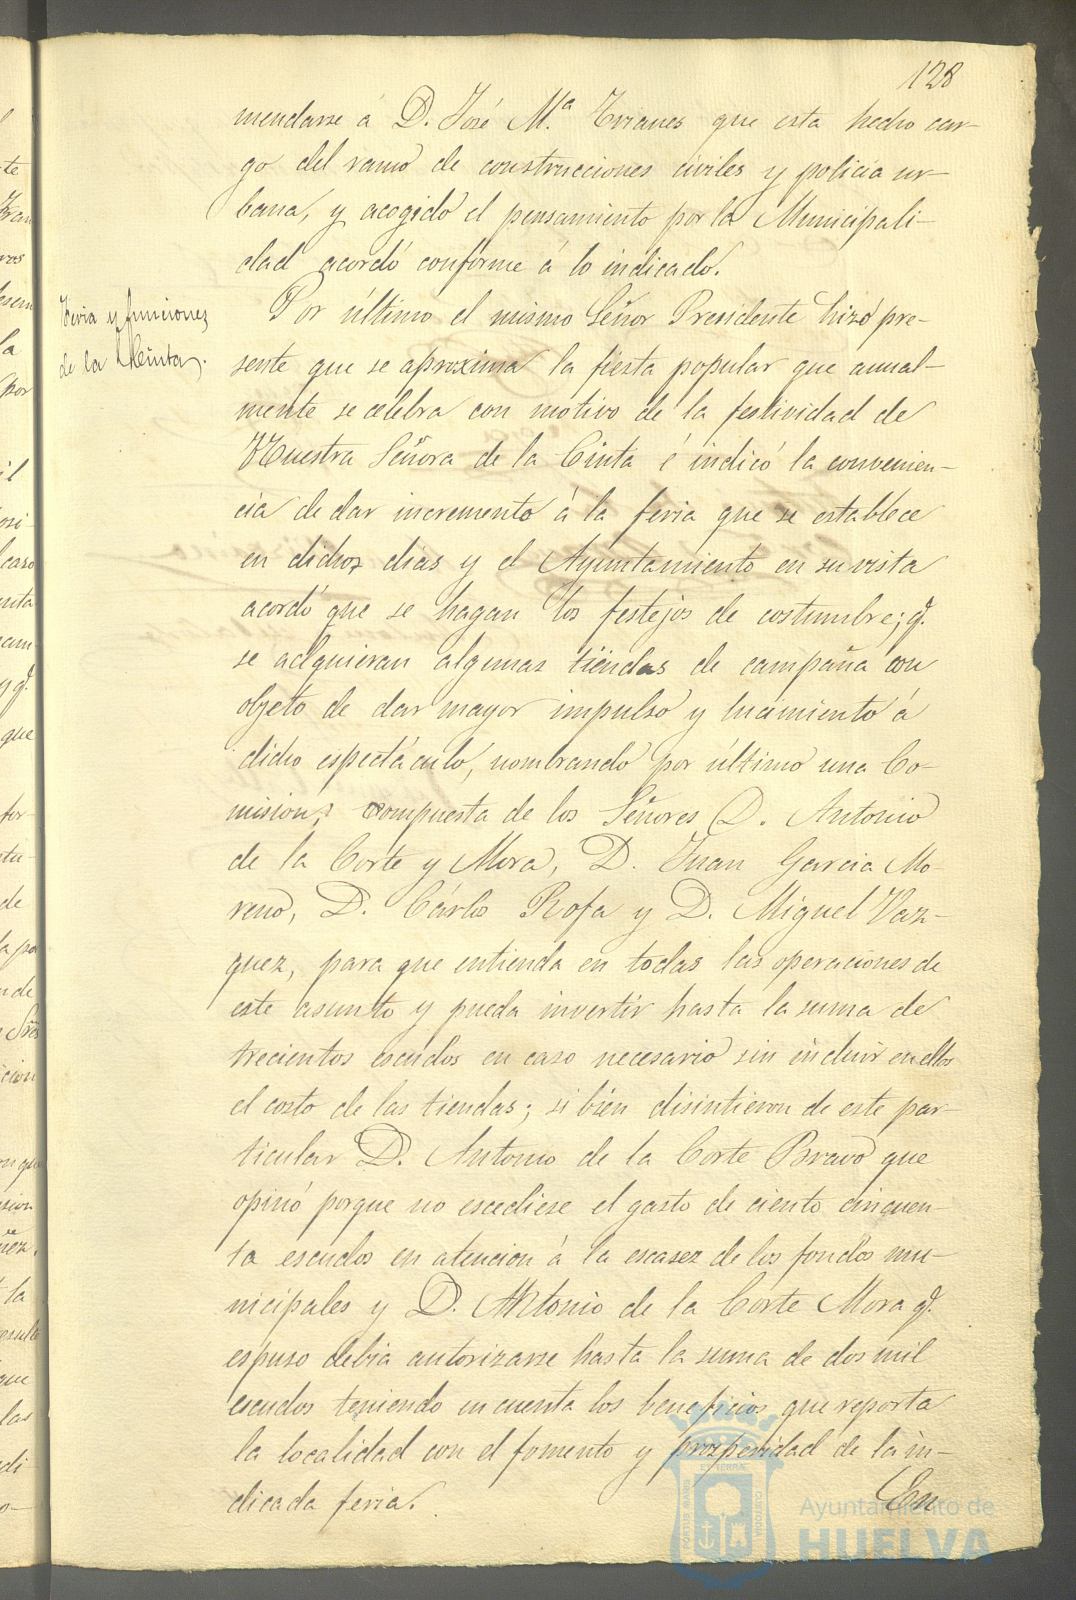 128
mendarse á D. José M.ª Trianes que esta hecho car-
go del ramo de construcciones civiles y policía ur-
bana, y acogido el pensamiento por la Municipali-
dad acordó conforme á lo indicado.
Feria y funciones
de la Cinta.
Por último el mismo Señor Presidente hizo pre-
sente que se aproxima la fiesta popular que anual-
mente se celebra con motivo de la festividad de
Nuestra Señora de la Cinta é indicó la convenien-
cia de dar incremento á la feria que se establece
en dichos dias y el Ayuntamiento en su vista
acordó que se hagan los festejos de costumbre; q.
se adquieran algunas tiendas de campaña con
objeto de dar mayor impulso y lucimiento á
dicho espectáculo, nombrando por último una Co-
mision, compuesta de los Señores D. Antonio
de la Corte y Mora, D. Juan Garcia Mo-
reno, D. Cárlos Rofa y D. Miguel Vaz-
quez, para que entienda en todas las operaciones de
este asunto y pueda invertir hasta la suma de
trecientos escudos en caso necesario sin incluir en ellos
el costo de las tiendas; si bien disintieron de este par-
ticular D. Antonio de la Corte Bravo que
opinó porque no escediese el gasto de ciento cincuen-
ta escudos en atencion á la escasez de los fondos mu-
nicipales y D. Antonio de la Corte Mora q.
espuso debia autorizarse hasta la suma de dos mil
escudos teniendo en cuenta los beneficios que reporta
la localidad con el fomento y prosperidad de la in-
dicada feria.
En
Ayuntamiento de
HUELVA